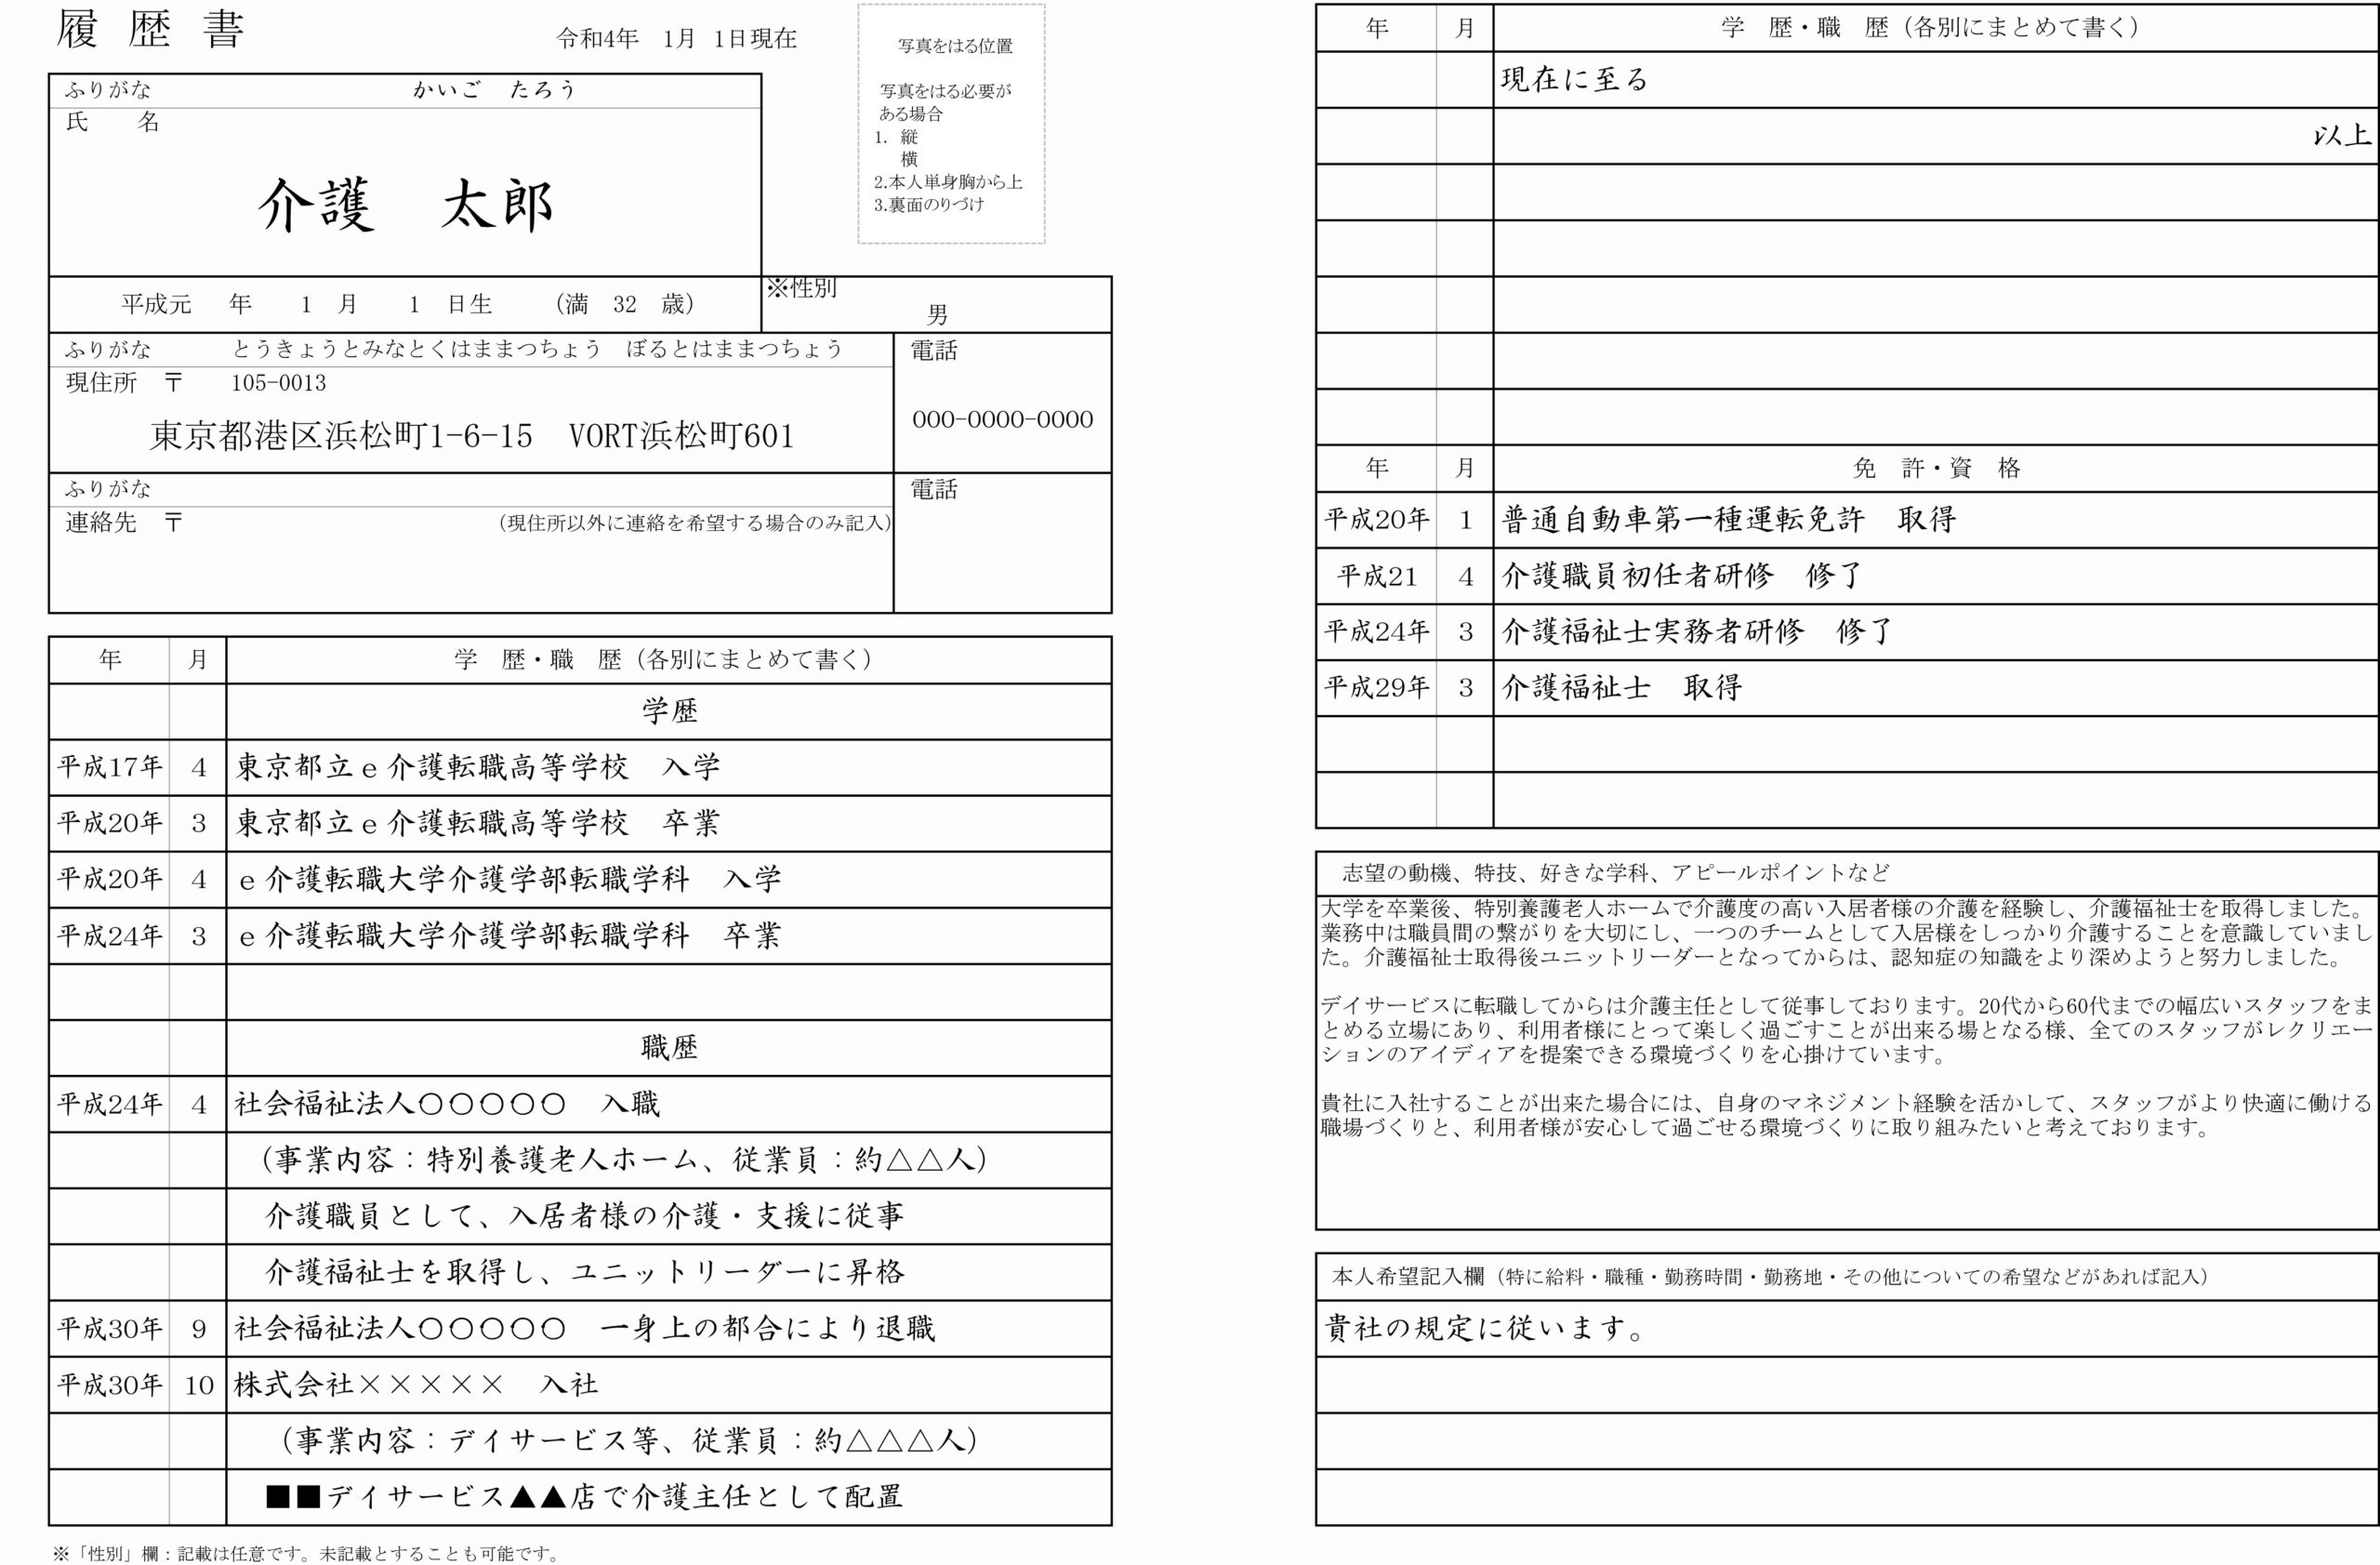 履 歴 書
令和4年 1月 1日現在
写真をはる位置
写真をはる必要が
ある場合
1. 縦
横
2.本人単身胸から上
3.裏面のりづけ
ふりがな かいご たろう
氏 名
介護 太郎
平成元 年 1 月 1 日生 （満 32 歳）
※性別
男
ふりがな とうきょうとみなとくはままつちょう ぼるとはままつちょう
電話
現住所 〒 105-0013
000-0000-0000
東京都港区浜松町1-6-15 VORT浜松町601
ふりがな
電話
連絡先 〒 （現住所以外に連絡を希望する場合のみ記入）
年 月 学 歴・職 歴（各別にまとめて書く）
学歴
平成17年 4 東京都立ｅ介護転職高等学校 入学
平成20年 3 東京都立ｅ介護転職高等学校 卒業
平成20年 4 ｅ介護転職大学介護学部転職学科 入学
平成24年 3 ｅ介護転職大学介護学部転職学科 卒業
職歴
平成24年 4 社会福祉法人〇〇〇〇〇 入職
（事業内容：特別養護老人ホーム、従業員：約△△人）
介護職員として、入居者様の介護・支援に従事
介護福祉士を取得し、ユニットリーダーに昇格
平成30年 9 社会福祉法人〇〇〇〇〇 一身上の都合により退職
平成30年 10 株式会社×××××　入社
（事業内容：デイサービス等、従業員：約△△△人）
■■デイサービス▲▲店で介護主任として配置
※「性別」欄：記載は任意です。未記載とすることも可能です。
年 月 学 歴・職 歴（各別にまとめて書く）
現在に至る
以上
年 月 免 許・資 格
平成20年 1 普通自動車第一種運転免許 取得
平成21 4 介護職員初任者研修 修了
平成24年 3 介護福祉士実務者研修 修了
平成29年 3 介護福祉士 取得
志望の動機、特技、好きな学科、アピールポイントなど
大学を卒業後、特別養護老人ホームで介護度の高い入居者様の介護を経験し、介護福祉士を取得しました。
業務中は職員間の繋がりを大切にし、一つのチームとして入居様をしっかり介護することを意識していまし
た。介護福祉士取得後ユニットリーダーとなってからは、認知症の知識をより深めようと努力しました。
デイサービスに転職してからは介護主任として従事しております。20代から60代までの幅広いスタッフをま
とめる立場にあり、利用者様にとって楽しく過ごすことが出来る場となる様、全てのスタッフがレクリエー
ションのアイディアを提案できる環境づくりを心掛けています。
貴社に入社することが出来た場合には、自身のマネジメント経験を活かして、スタッフがより快適に働ける
職場づくりと、利用者様が安心して過ごせる環境づくりに取り組みたいと考えております。
本人希望記入欄（特に給料・職種・勤務時間・勤務地・その他についての希望などがあれば記入）
貴社の規定に従います。